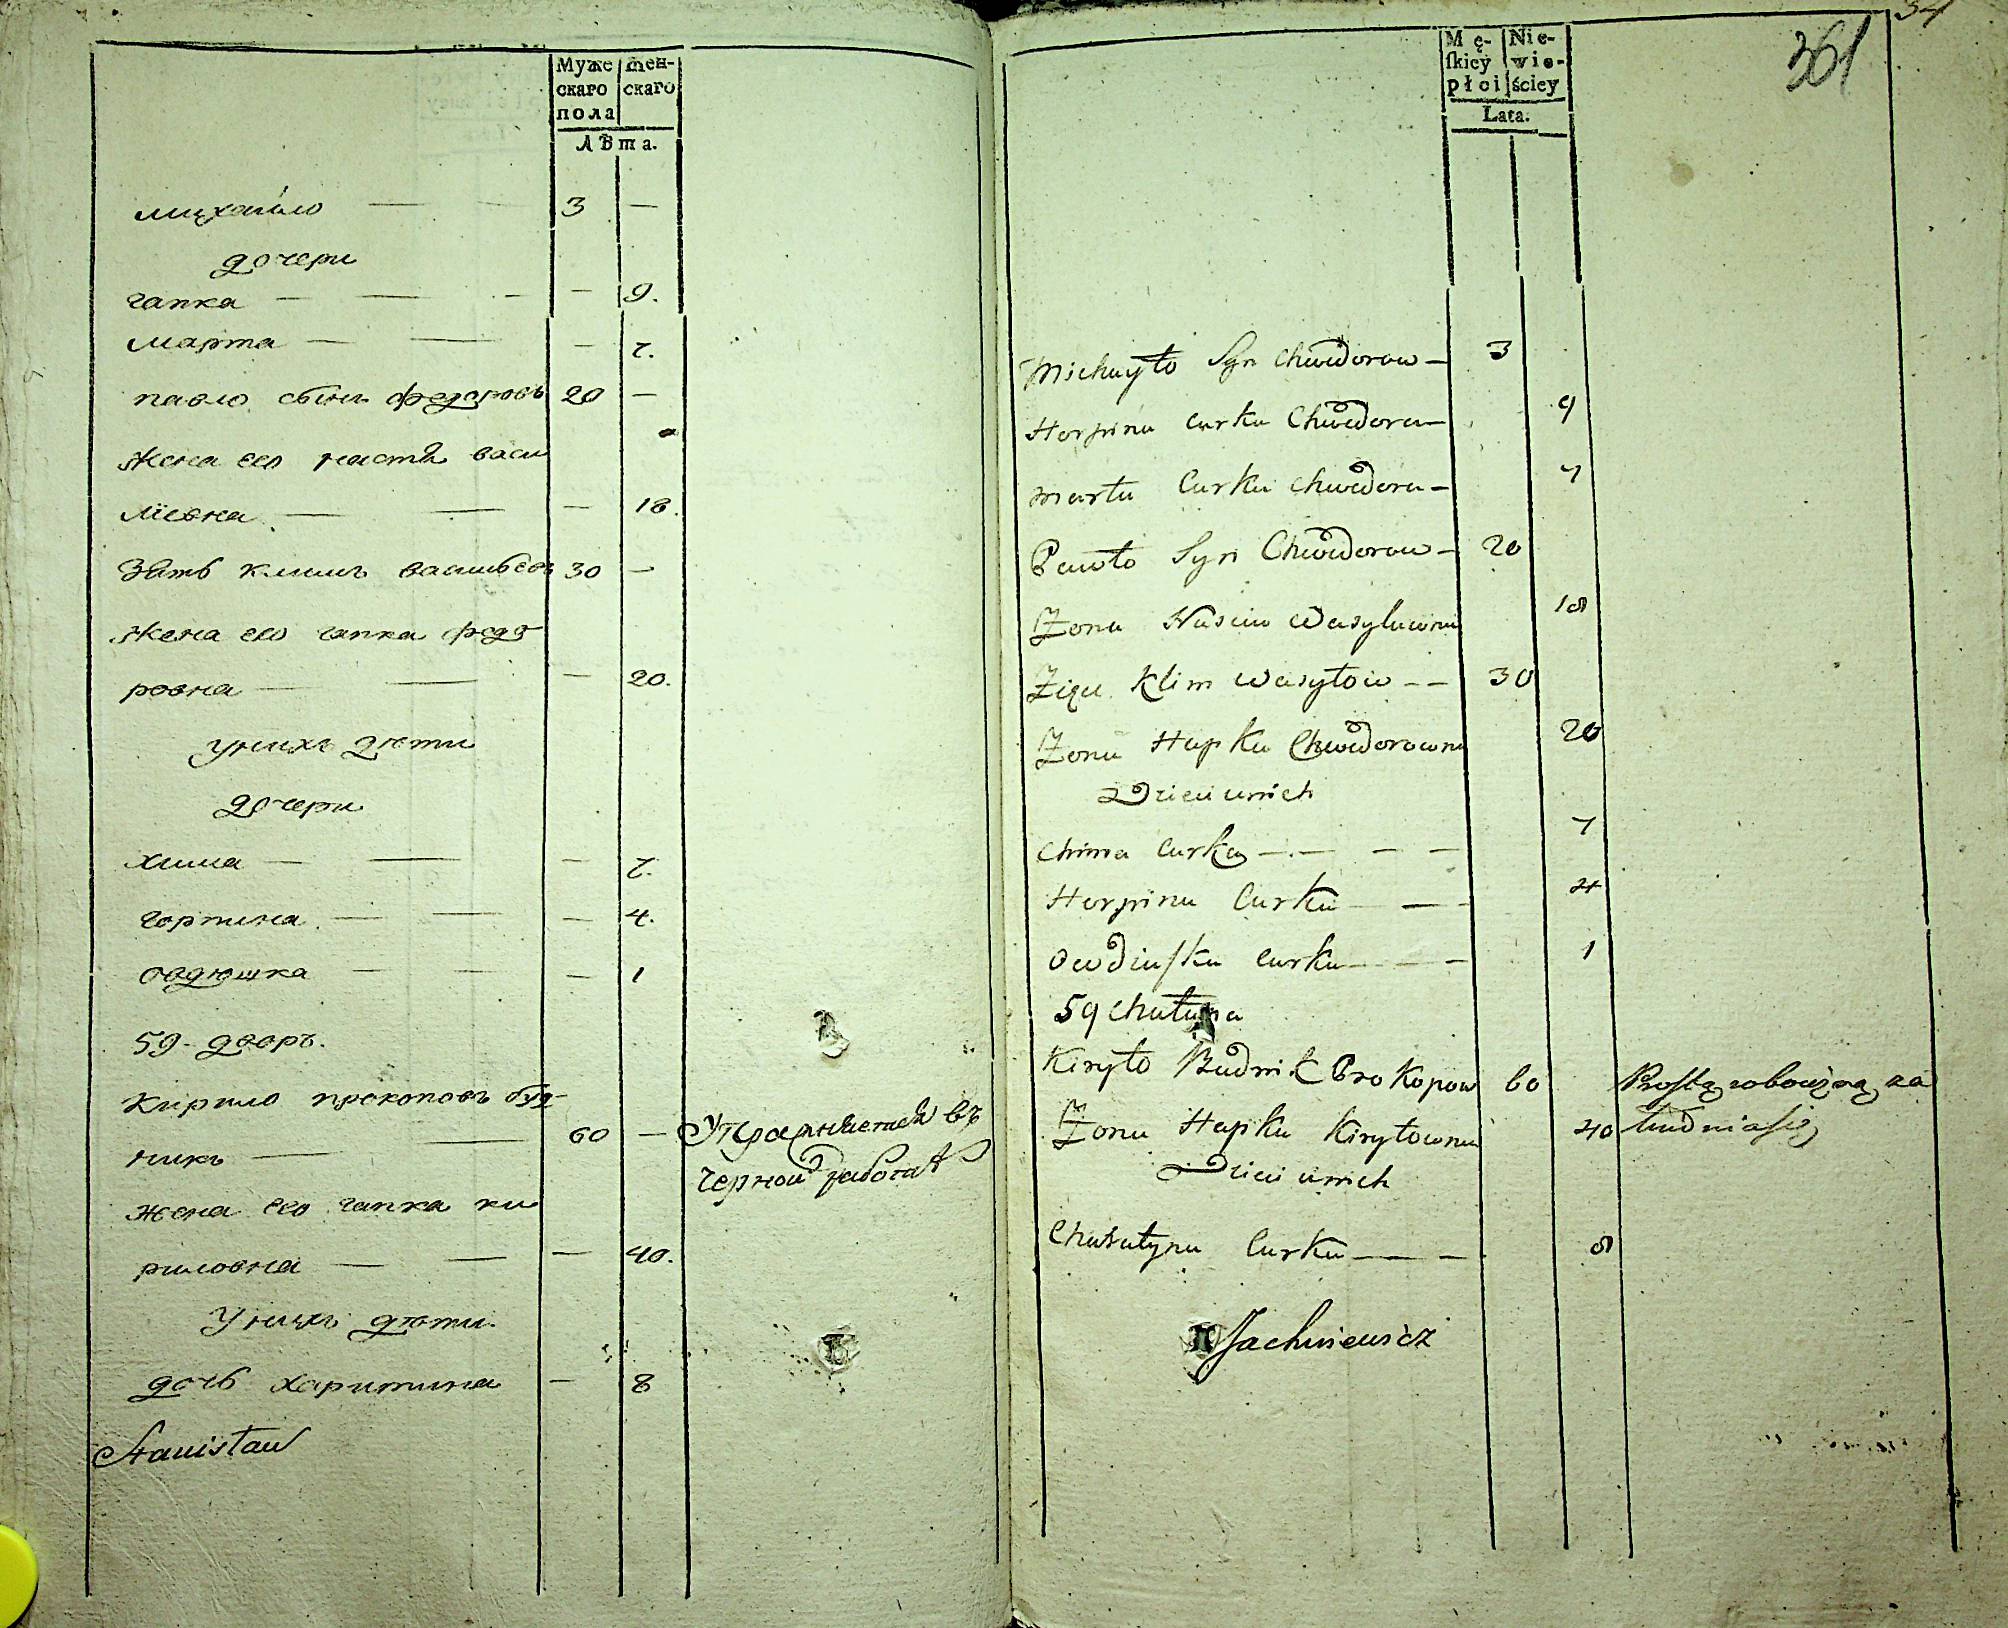 Муже
скаго
пола
жен-
скаго
лѣта.
михайло — — 3 —
дочери
гапка — — - — 9.
марта — — — 7.
павло сынъ федоровъ 20 —
жена его настя васи
лiевна — — — 18.
Зять климъ васильевъ 30 —
жена его гапка федо
ровна — — — 20.
у нихъ дѣти
дочери
хима — — — 7.
горпина — — — 4.
овдюшка — — — 1
59. дворъ.
Кирило прокоповъ буд-
никъ — — 60 — Упражняется въ
черной работѣ
жена его гапка ки
риловна — — — 40.
У нихъ дѣти.
дочь харитина — 8
Stanisław
34
361
Mę-
ſkiey
płci
Nie-
wie-
ściey
Lata.
Michayło Syn Chwedorow — 3
Horpina Curka Chwedora — 9
Marta Curka Chwedora — 7
Pawło Syn Chwedorow — 20
Żona Nasciu Wasylowna 18
Zięć Klim Wasyłow — — 30
Żona Hapka Chwedorowna 20
Dzieci u nich
Chima Curka — — — — 7
Horpina Curka — — 4
Owdiuſzka Curka — — — 1
59 Chałupa
Kiryło Budnik Prokopow 60 Prostą robocizną za
Żona Hapka Kiryłowna 40
Dzieci u nich
Charatyna Curka — — — 8
Jachniewicz